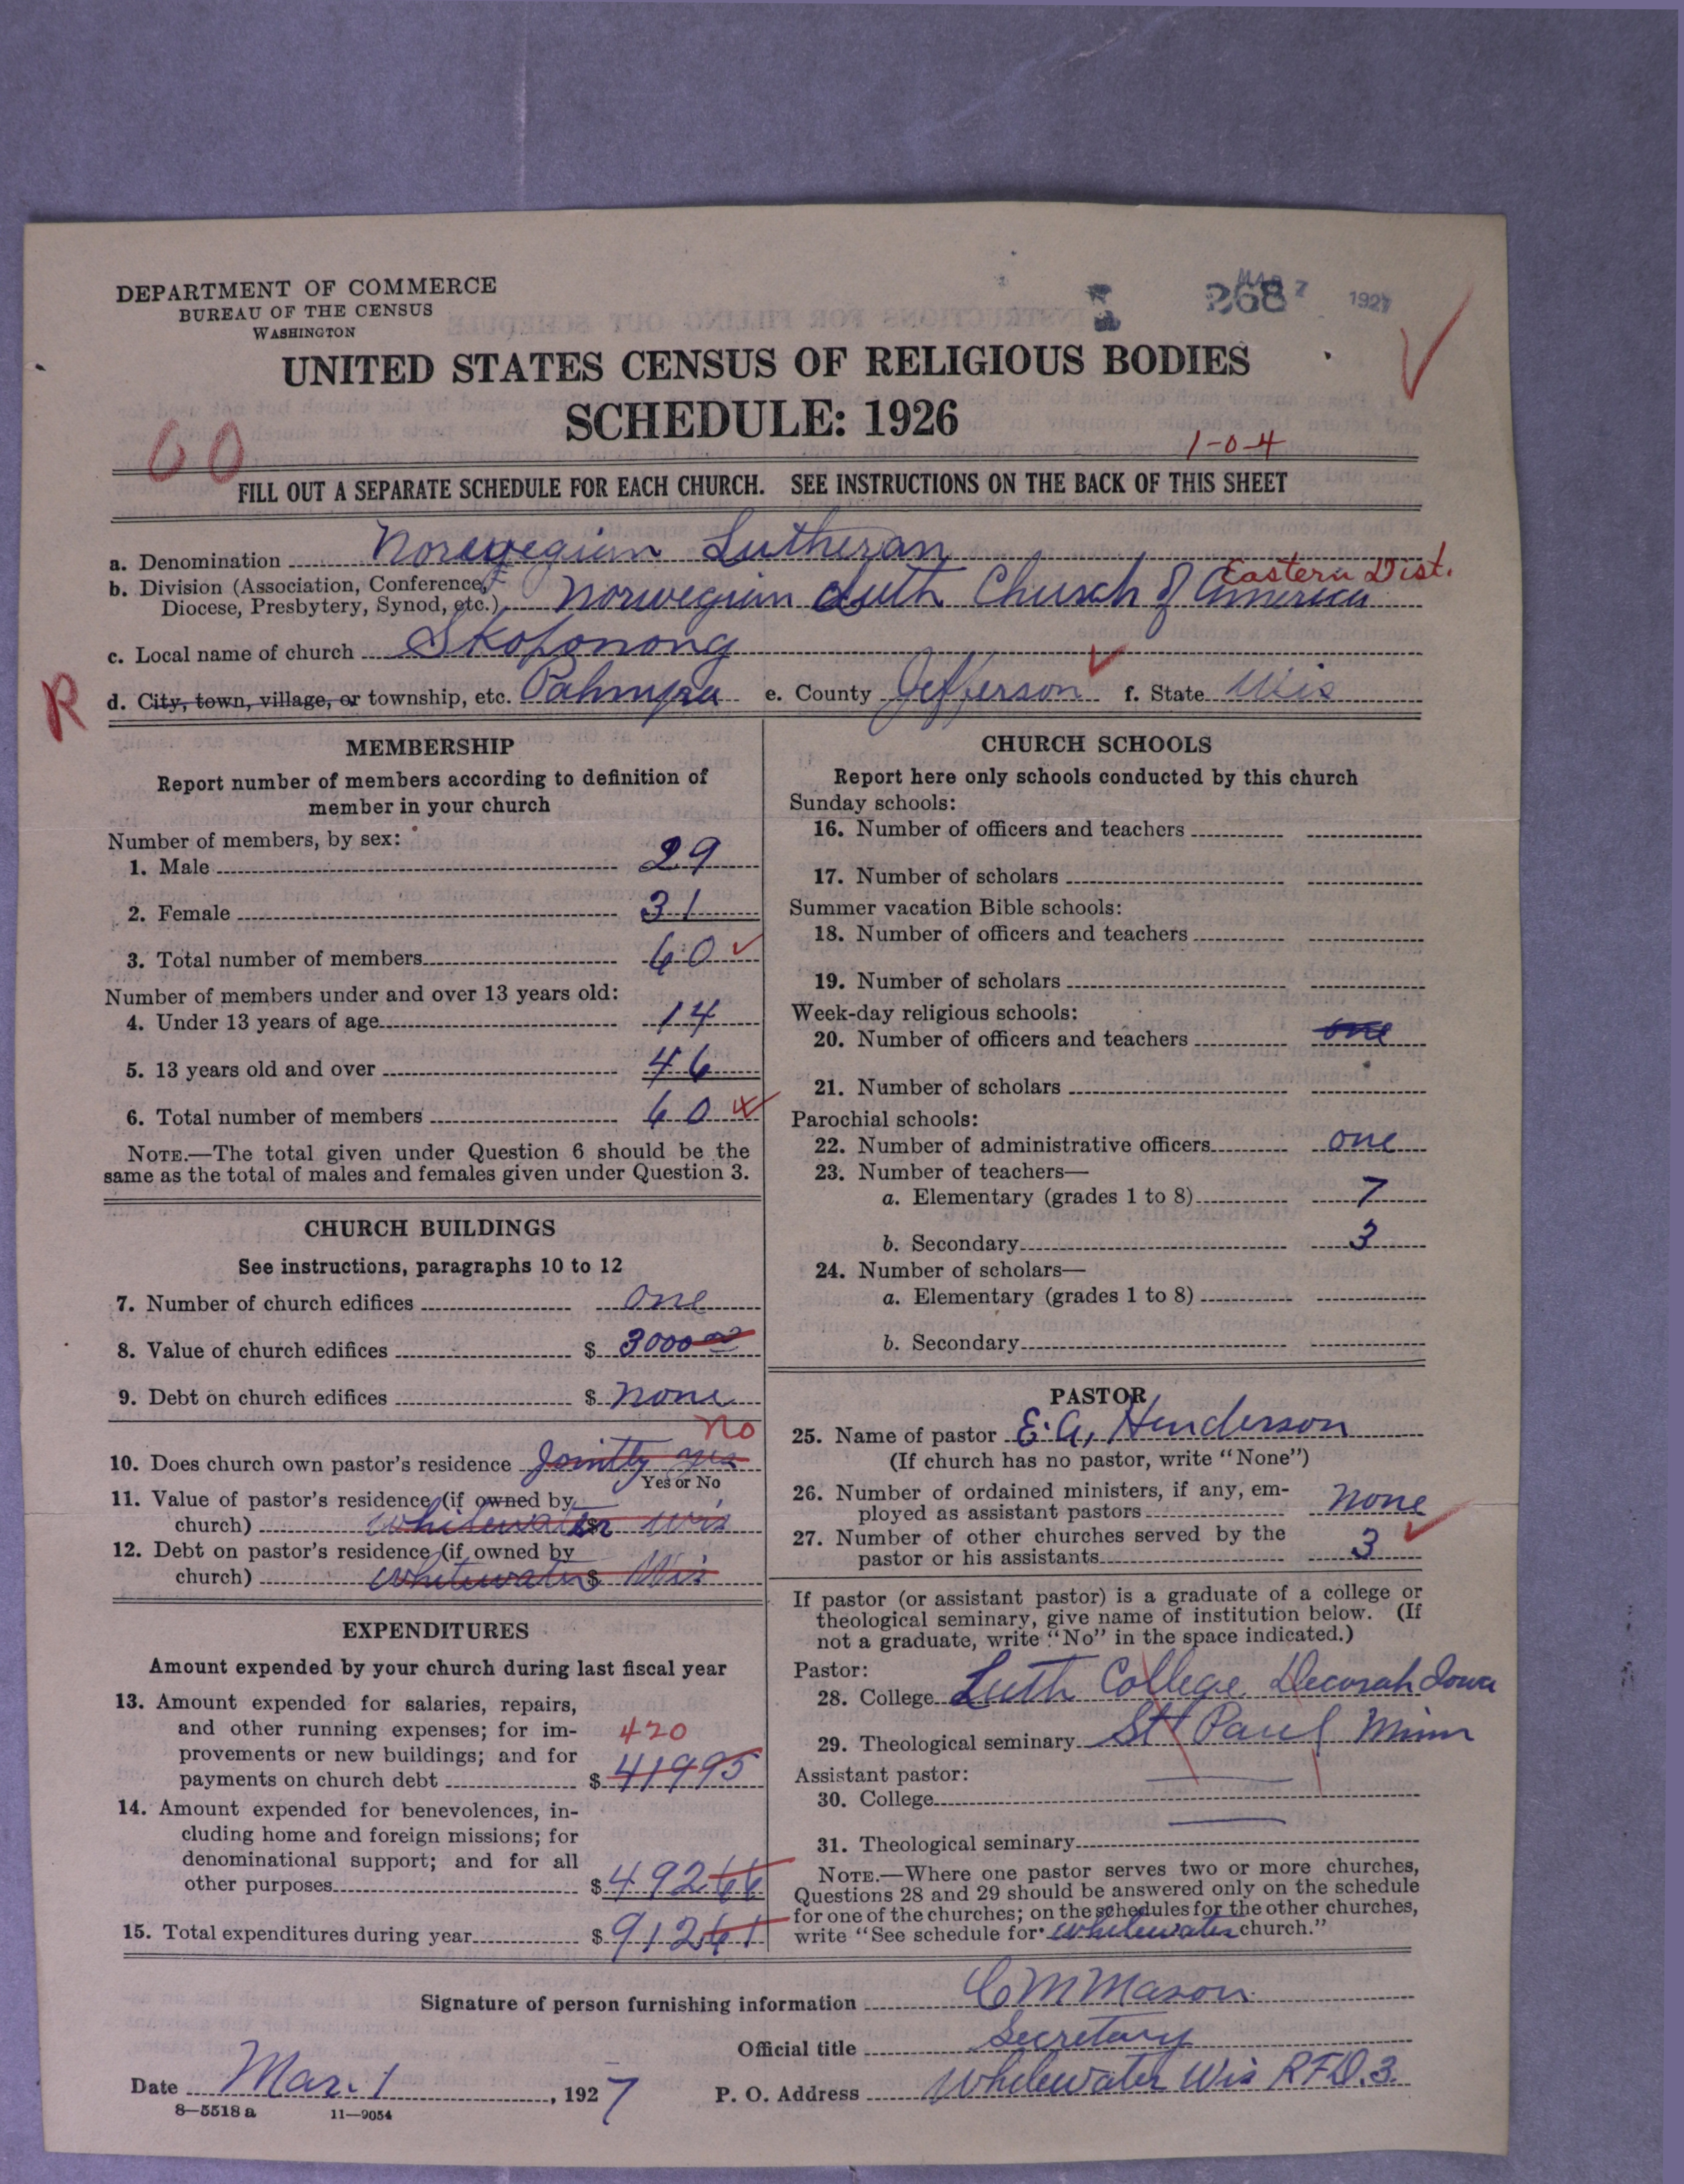 DEPARTMENT OF COMMERCE
BUREAU OF THE CENSUS
WASHINGTON
268
MAR 7 1927
UNITED STATES CENSUS OF RELIGIOUS BODIES
SCHEDULE: 1926
60
1-0-4
FILL OUT A SEPARATE SCHEDULE FOR EACH CHURCH. SEE INSTRUCTIONS ON THE BACK OF THIS SHEET
a. Denomination Norwegian Lutheran
Eastern Dist.
b. Division (Association, Conference,
Diocese, Presbytery, Synod, etc.) Norwegian Luth Church of America
c. Local name of church Skoponong
R
d. City, town, village, or township, etc. Palmyra e. County Jefferson f. State Wis
MEMBERSHIP
Report number of members according to definition of
member in your church
Number of members, by sex:
1. Male 29
2. Female 31
3. Total number of members 60
Number of members under and over 13 years old:
4. Under 13 years of age 14
5. 13 years old and over 46
6. Total number of members 60
NOTE.—The total given under Question 6 should be the
same as the total of males and females given under Question 3.
CHURCH BUILDINGS
See instructions, paragraphs 10 to 12
7. Number of church edifices One
8. Value of church edifices $ 3000 00
9. Debt on church edifices $ none
no
10. Does church own pastor's residence Jointly yes
Yes or No
11. Value of pastor's residence (if owned by
church) Whitewater $ Wis
12. Debt on pastor's residence (if owned by
church) Whitewater $ Wis
EXPENDITURES
Amount expended by your church during last fiscal year
13. Amount expended for salaries, repairs,
and other running expenses; for im-
provements or new buildings; and for
payments on church debt $ 41995
420
14. Amount expended for benevolences, in-
cluding home and foreign missions; for
denominational support; and for all
other purposes $ 49266
15. Total expenditures during year $ 91261
CHURCH SCHOOLS
Report here only schools conducted by this church
Sunday schools:
16. Number of officers and teachers
17. Number of scholars
Summer vacation Bible schools:
18. Number of officers and teachers
19. Number of scholars
Week-day religious schools:
20. Number of officers and teachers one
21. Number of scholars
Parochial schools:
22. Number of administrative officers one
23. Number of teachers—
a. Elementary (grades 1 to 8) 7
b. Secondary 3
24. Number of scholars—
a. Elementary (grades 1 to 8)
b. Secondary
PASTOR
25. Name of pastor E. A. Henderson
(If church has no pastor, write "None")
26. Number of ordained ministers, if any, em-
ployed as assistant pastors none
27. Number of other churches served by the
pastor or his assistants 3
If pastor (or assistant pastor) is a graduate of a college or
theological seminary, give name of institution below. (If
not a graduate, write "No" in the space indicated.)
Pastor:
28. College Luth College Decorah Iowa
29. Theological seminary St Paul Minn
Assistant pastor:
30. College
31. Theological seminary
NOTE.—Where one pastor serves two or more churches,
Questions 28 and 29 should be answered only on the schedule
for one of the churches; on the schedules for the other churches,
write "See schedule for Whitewater church."
Signature of person furnishing information C M Mason
Official title Secretary
Date Mar. 1, 1927 P. O. Address Whitewater Wis RFD. 3.
8-5518 a 11-9054